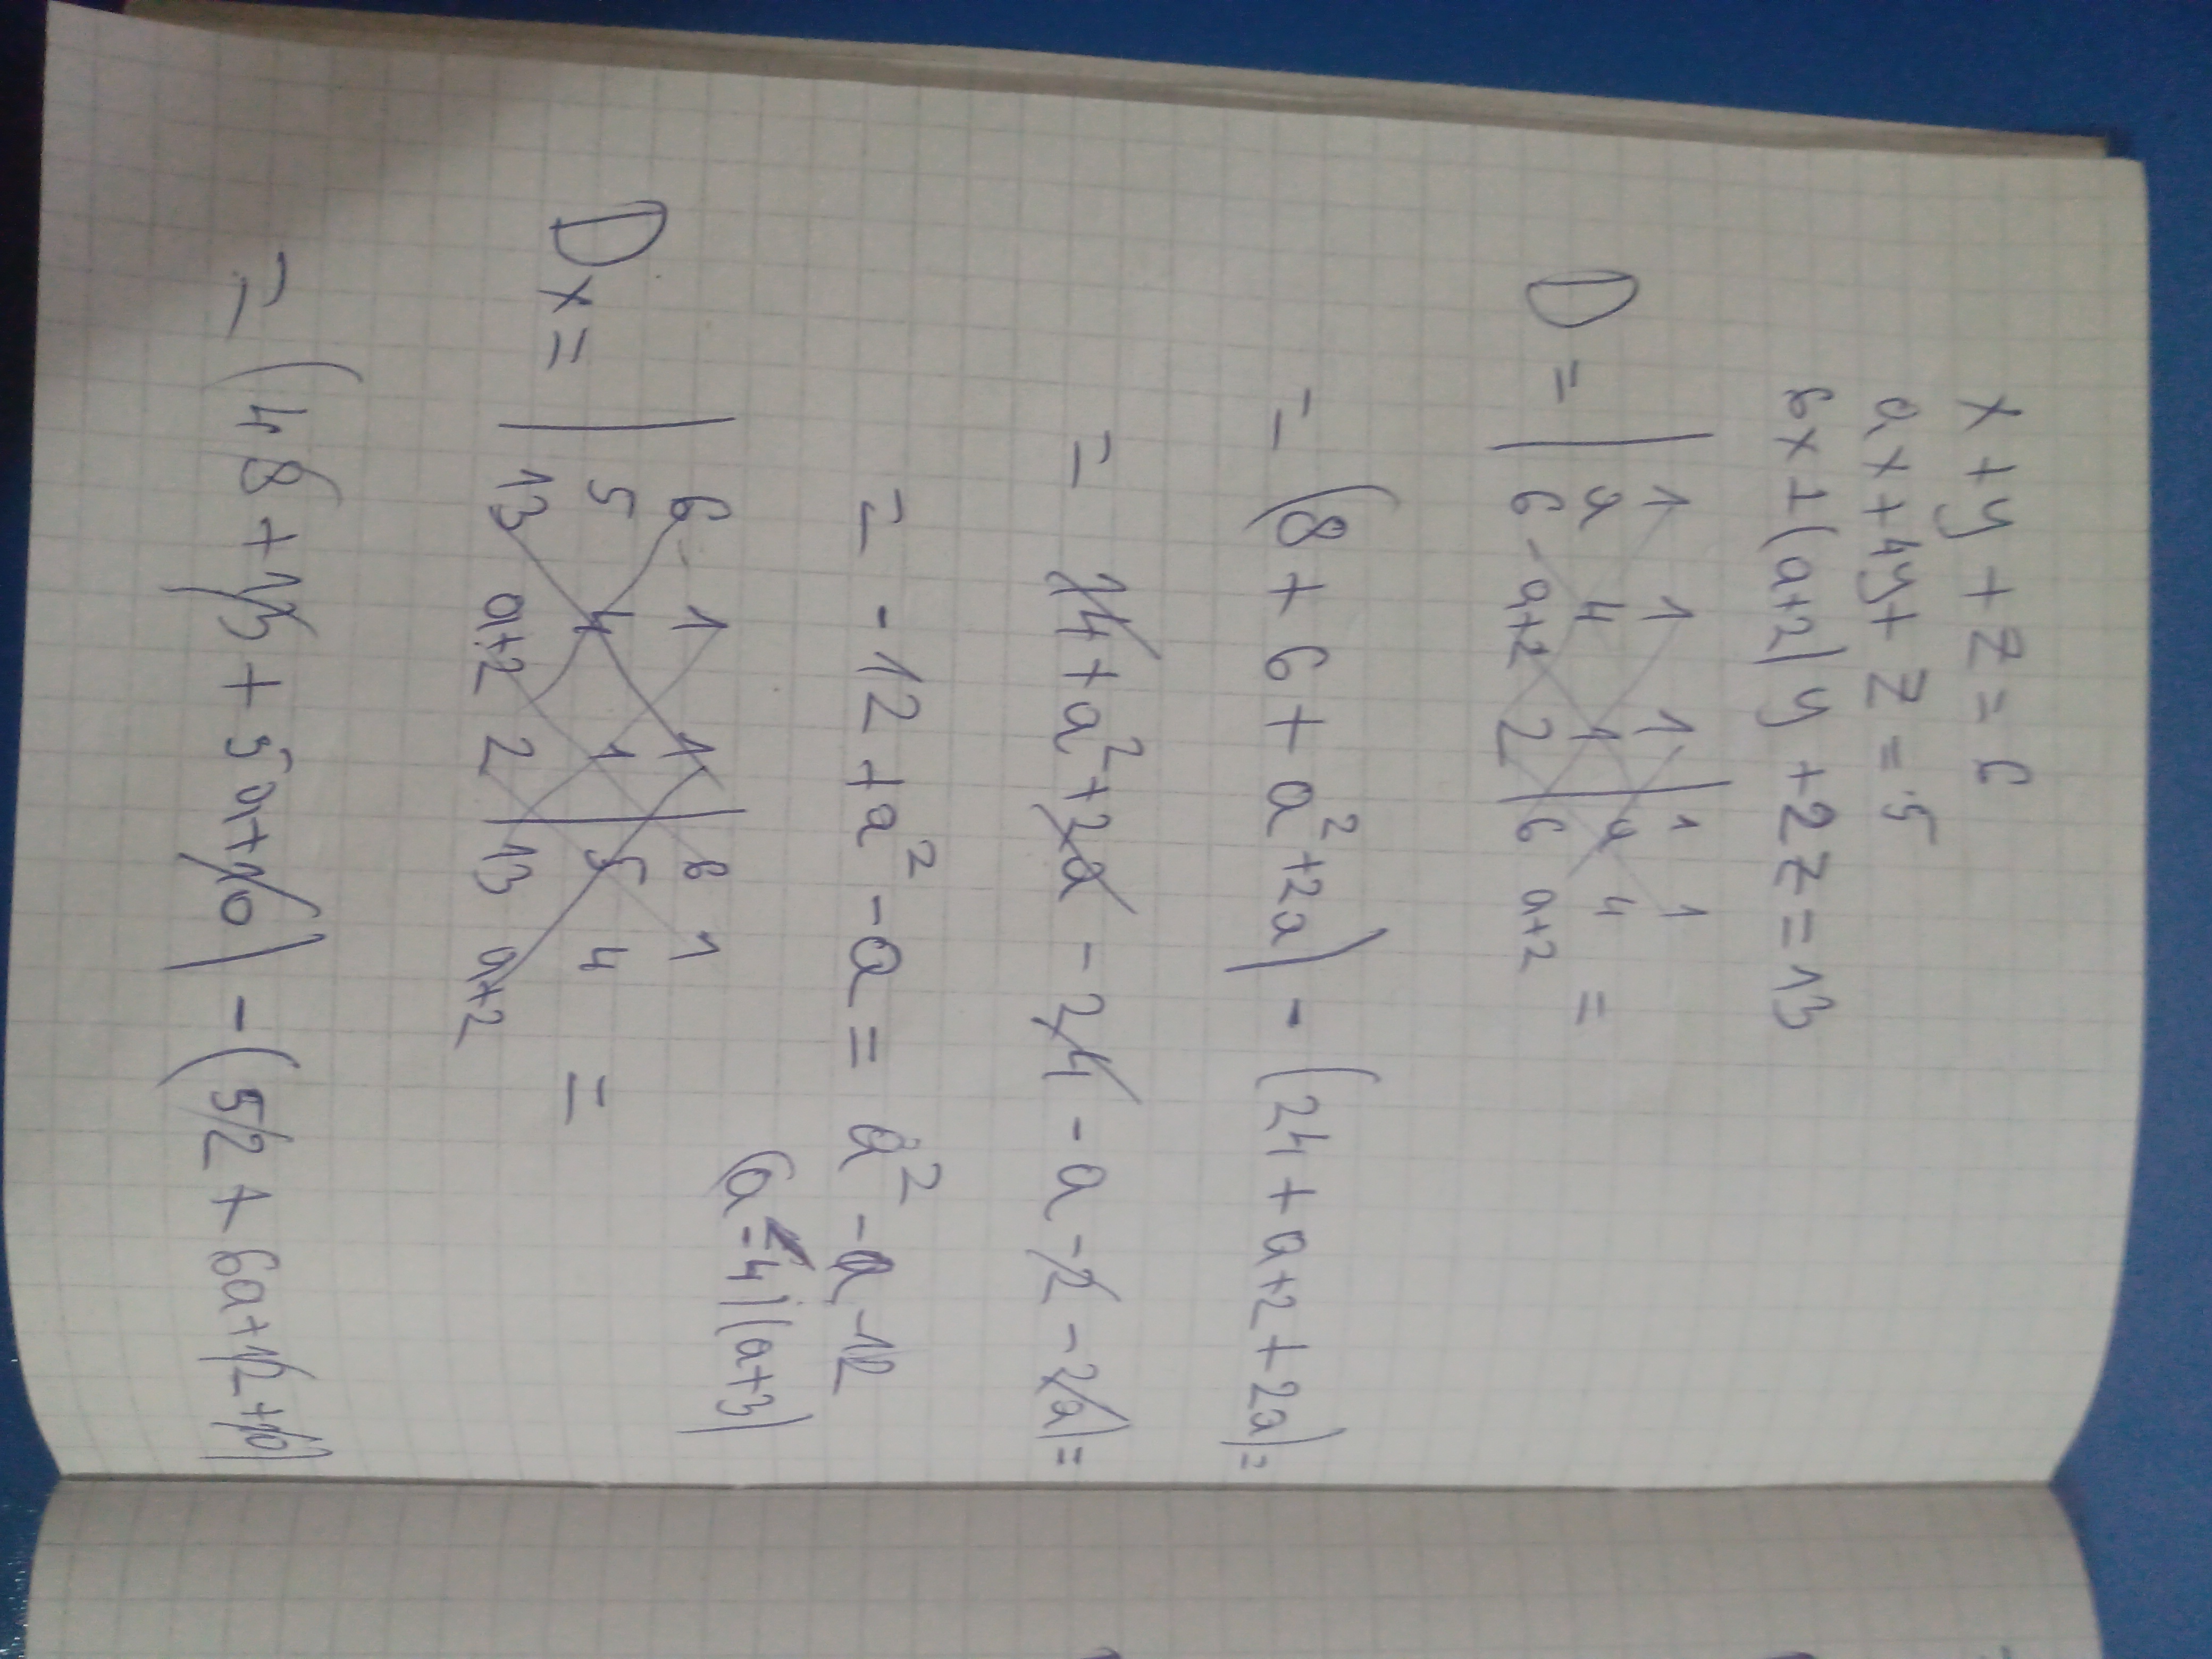 x + y + z = 6
ax + 4y + z = 5
6x + (a+2) y + 2z = 13
D = | 1 1 1 | 1 1
a 4 1 | a 4 =
6 a+2 2 | 6 a+2
= (8 + 6 + a² + 2a) - (24 + a + 2 + 2a) =
= 14 + a² + 2a - 24 - a - 2 - 2a) =
= -12 + a² - a = a² - a - 12
(a - 4)(a+3)
Dx = | 6 1 1 | 6 1
5 4 1 | 5 4 =
13 a+2 2 | 13 a+2
= (48 + 13 + 5a + 10) - (52 + 6a + 12 + 10)